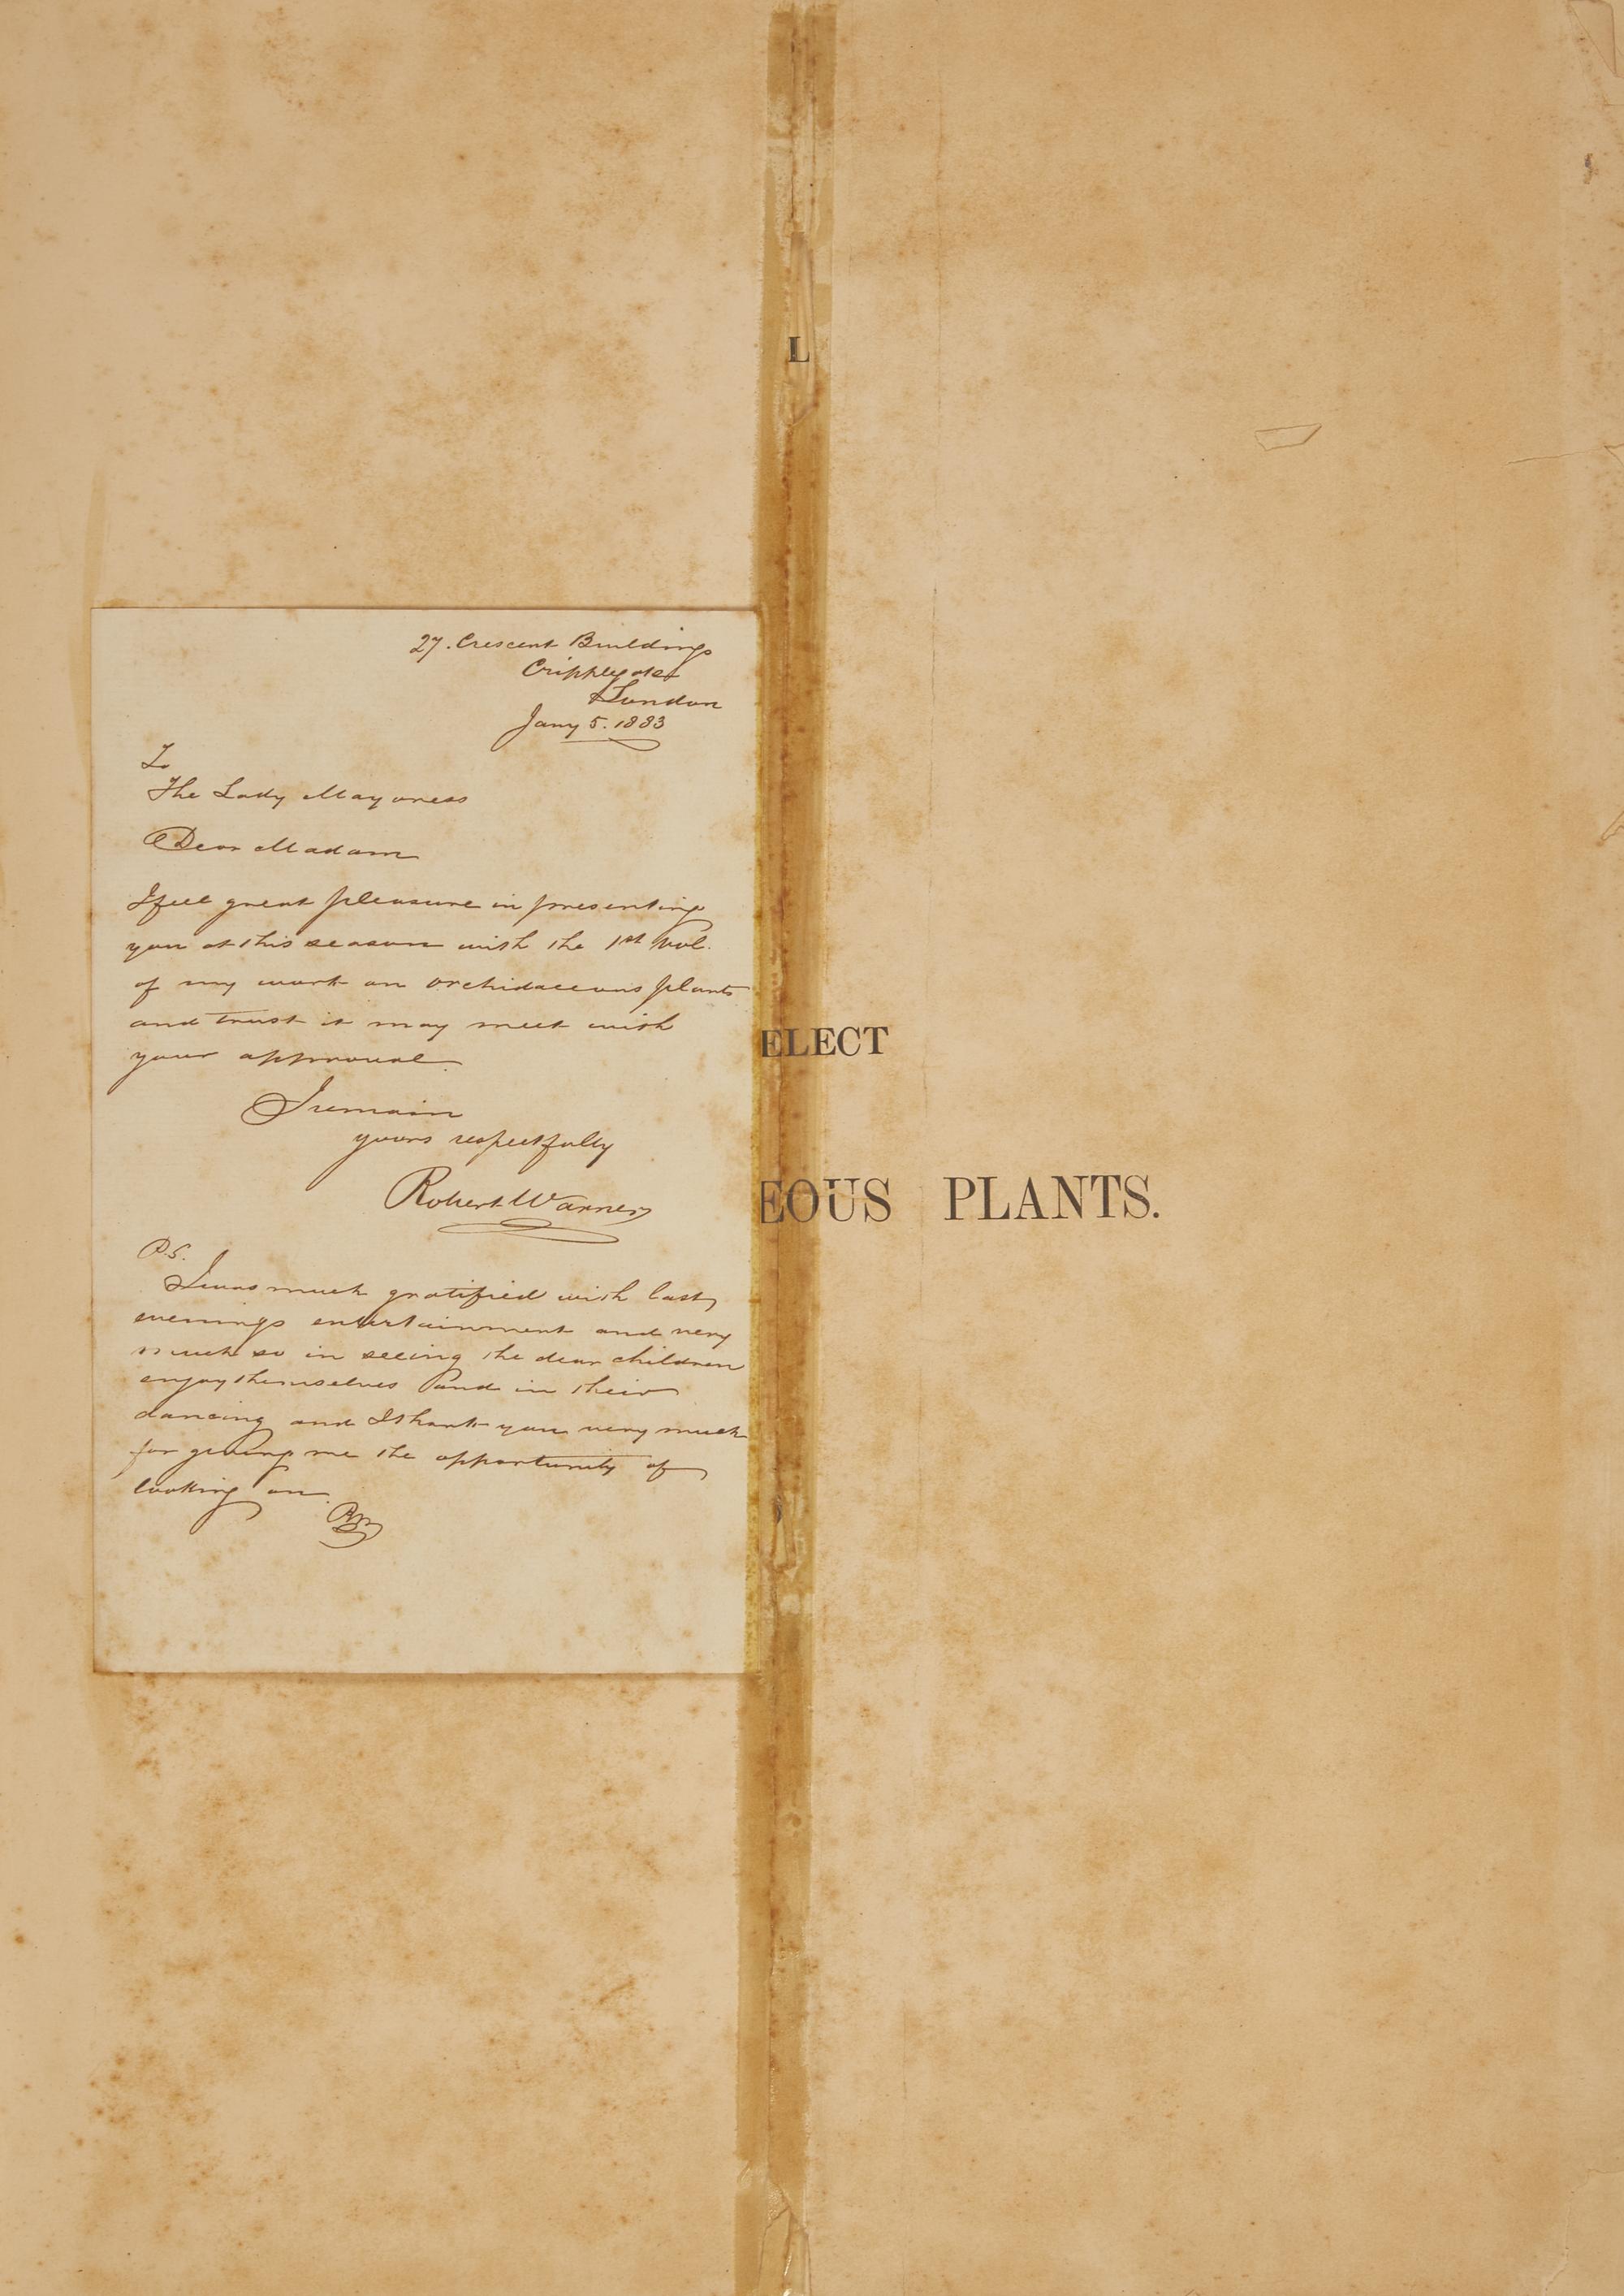 27. Crescent Buildings
Cripplegate
London
Jany 5. 1883
To
The Lady Mayoress
Dear Madam
I feel great pleasure in presenting
you at this season with the 1st Vol.
of my work on Orchidaceous plants
and trust it may meet with
your approval.
I remain
yours respectfully
Robert Warner
P.S.
I was much gratified with last
evenings entertainment and very
much so in seeing the dear children
enjoy themselves and in their
dancing and I thank you very much
for giving me the opportunity of
looking on.
RW
L
ELECT
EOUS PLANTS.